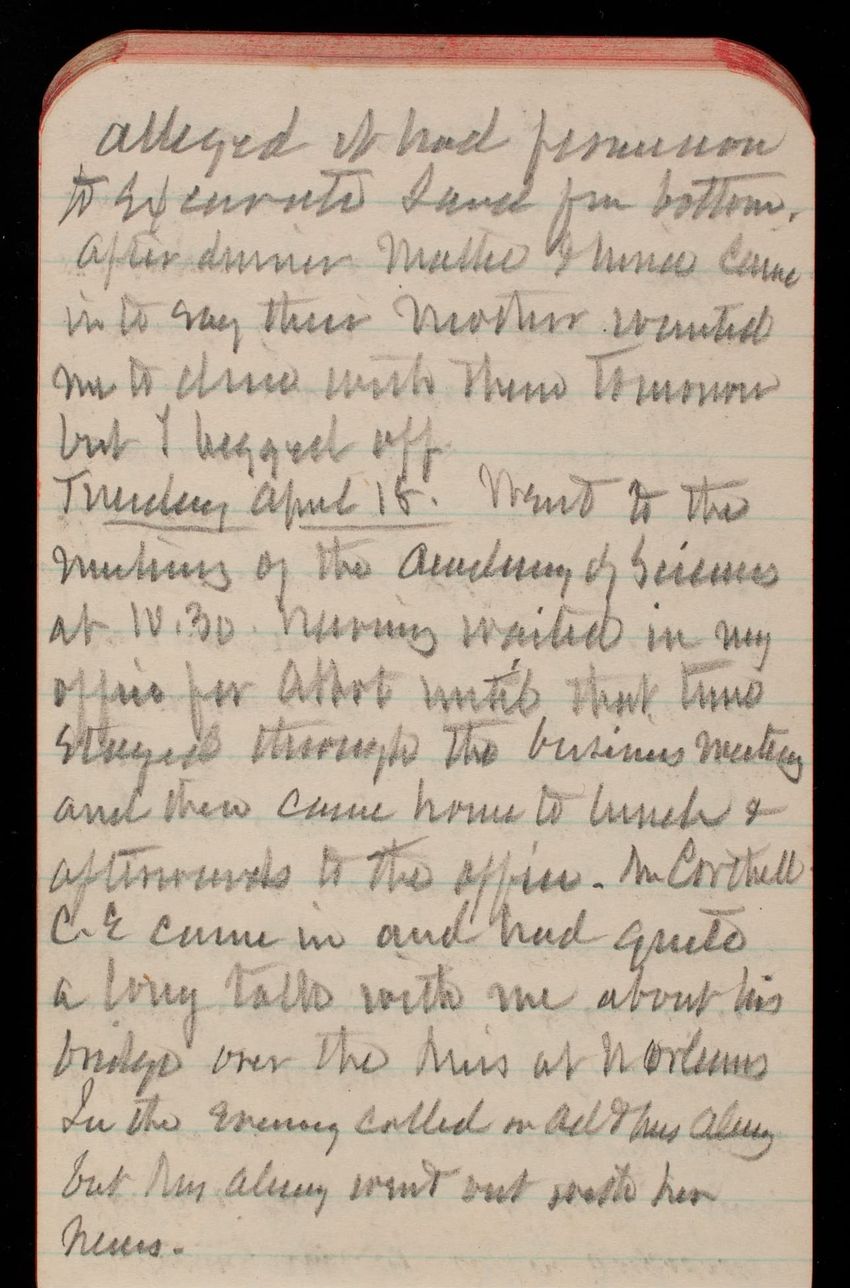 alleged it had permission
to excavate sand from bottom.
After dinner Mattie & came
in to say their Mother wanted
me to dine with them tomorrow
but I begged off
Tuesday April 18. Went to the
meeting of the Academy of Sciences
at 10.30. Having waited in my
office for Abbot until that time
Stayed through the business meeting
and then came home to lunch &
afterwards to the office. Mr Corthell
C.E came in and had quite
a long talk with me about his
bridge over the Miss at N Orleans
In the Evening called on Ad & Mrs
but Mrs went out with her